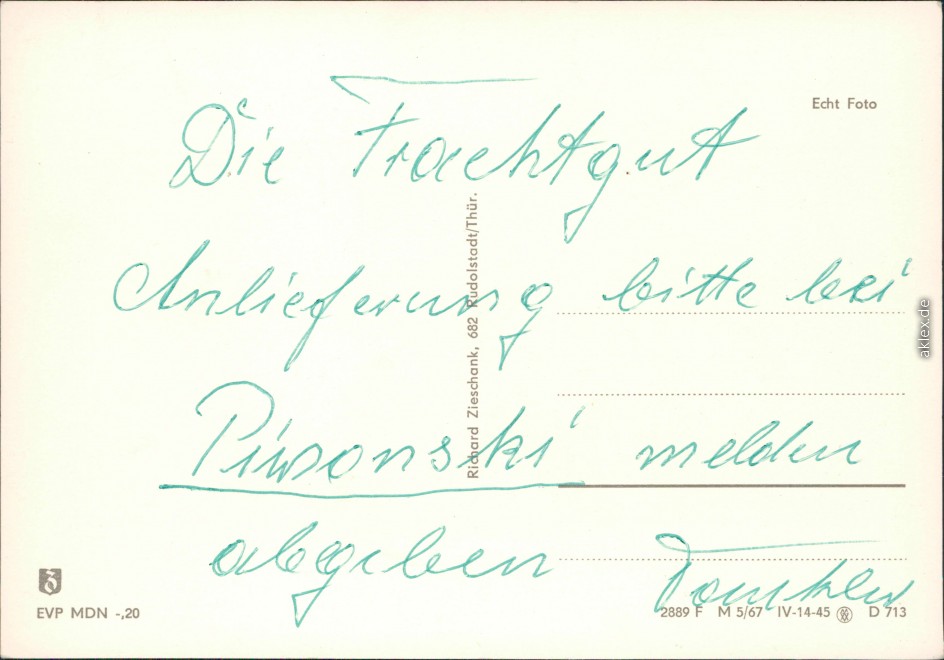 Echt Foto
Die Frachtgut
Anlieferung bitte bei
Piwonski melden
abgeben
Richard Zieschank, 682 Rudolstadt/Thür.
EVP MDN -,20
2889 F M 5/67 IV-14-45 D 713
aklex.de